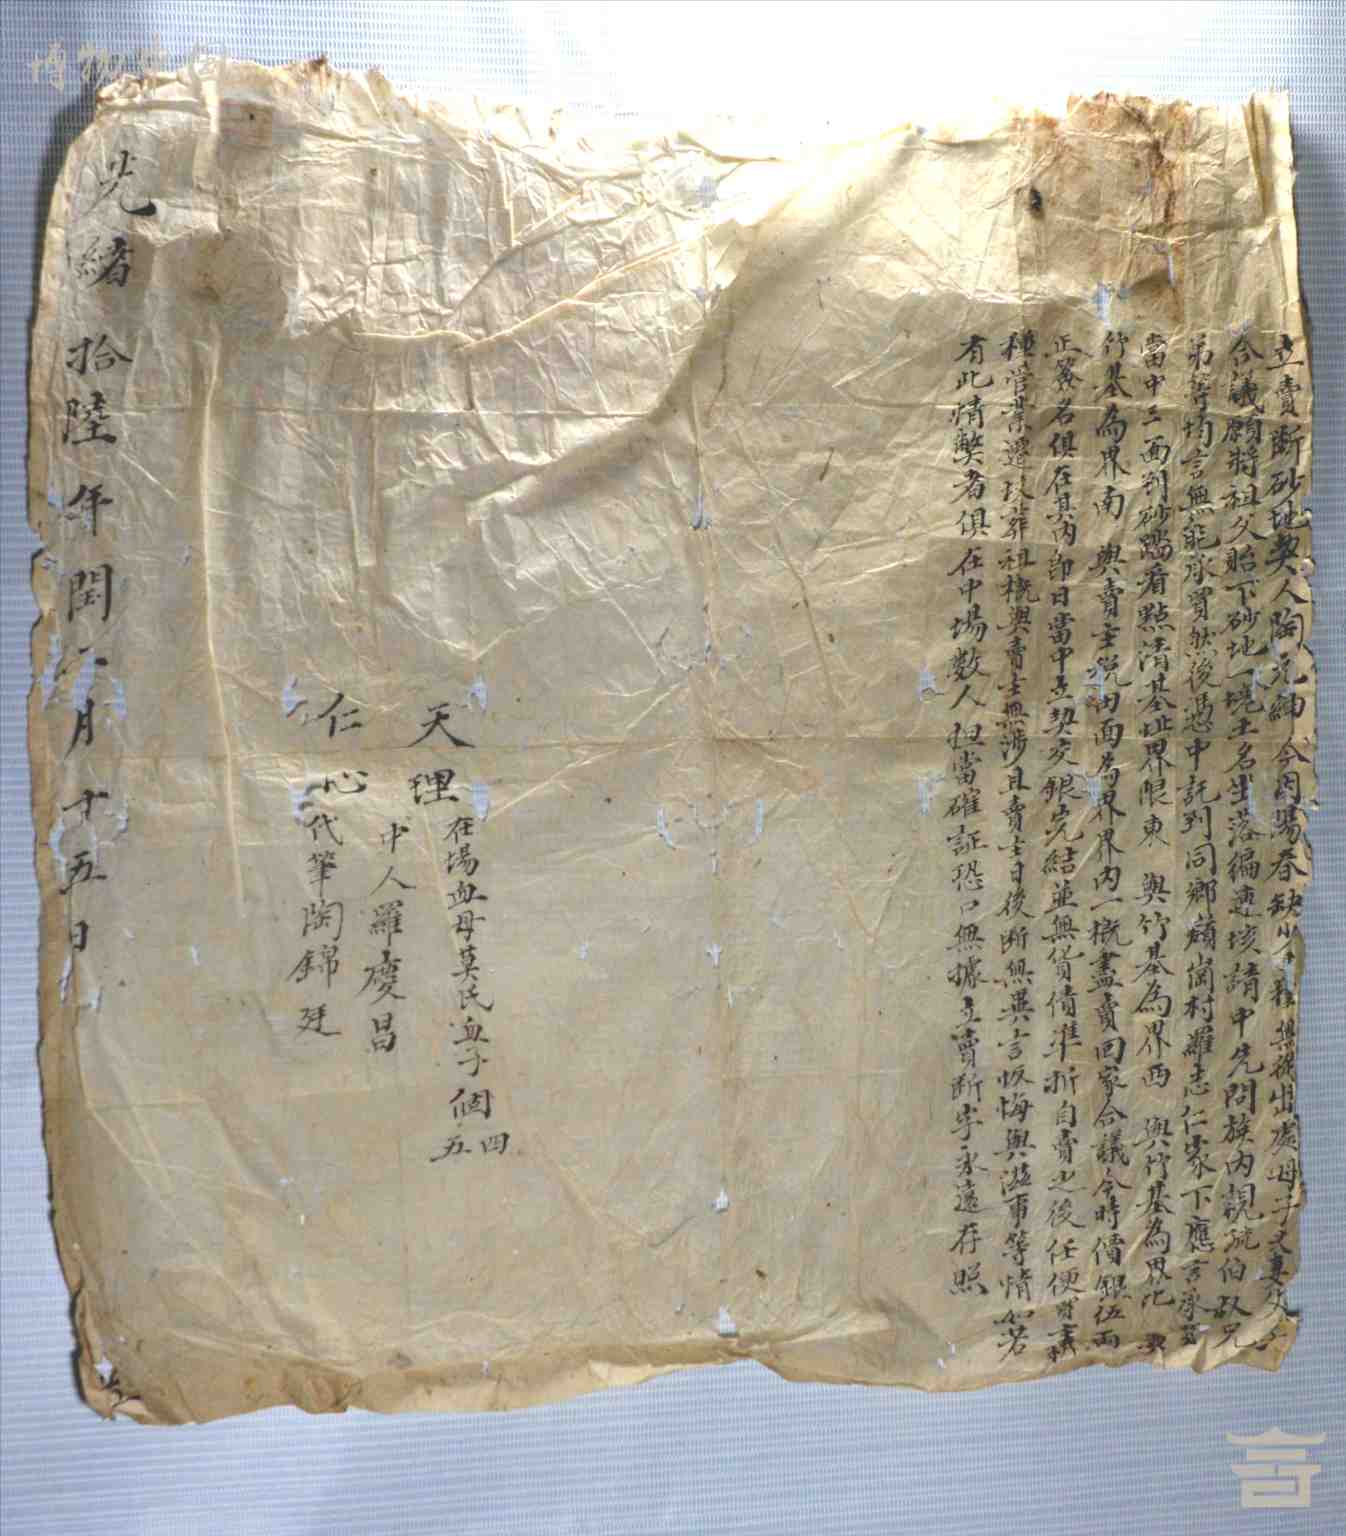 立賣斷砂地契人陶元紳今因陽春缺少無從出處母子夫妻父子
合議願將祖父貽下砂地一境土名坐落編連垓請中先問族內親疏伯叔兄
弟等均言無能承買然後憑中託到同鄉嶺崗村羅志仁家下應言承買
當中三面到砂踏看點清基址界限東 與竹基為界西 與竹基為界北 與
竹基為界南 與賣主田面為界界內一概盡賣回家合議令時價銀伍兩
正簽名俱在其內即日當中立契交銀完結並無貨債準折自賣之後任便買主
種管業遷坟葬祖概與賣主無涉且賣主日後斷無異言恢悔與滋事等情如若
有此情弊者俱在中場數人担當確証恐口無據立賣斷字永遠存照
天理 在場血母莫氏血子個四五
中人羅慶昌
仁心 代筆陶錦廷
光緒拾陸年閏二月十五日 立
博物中國